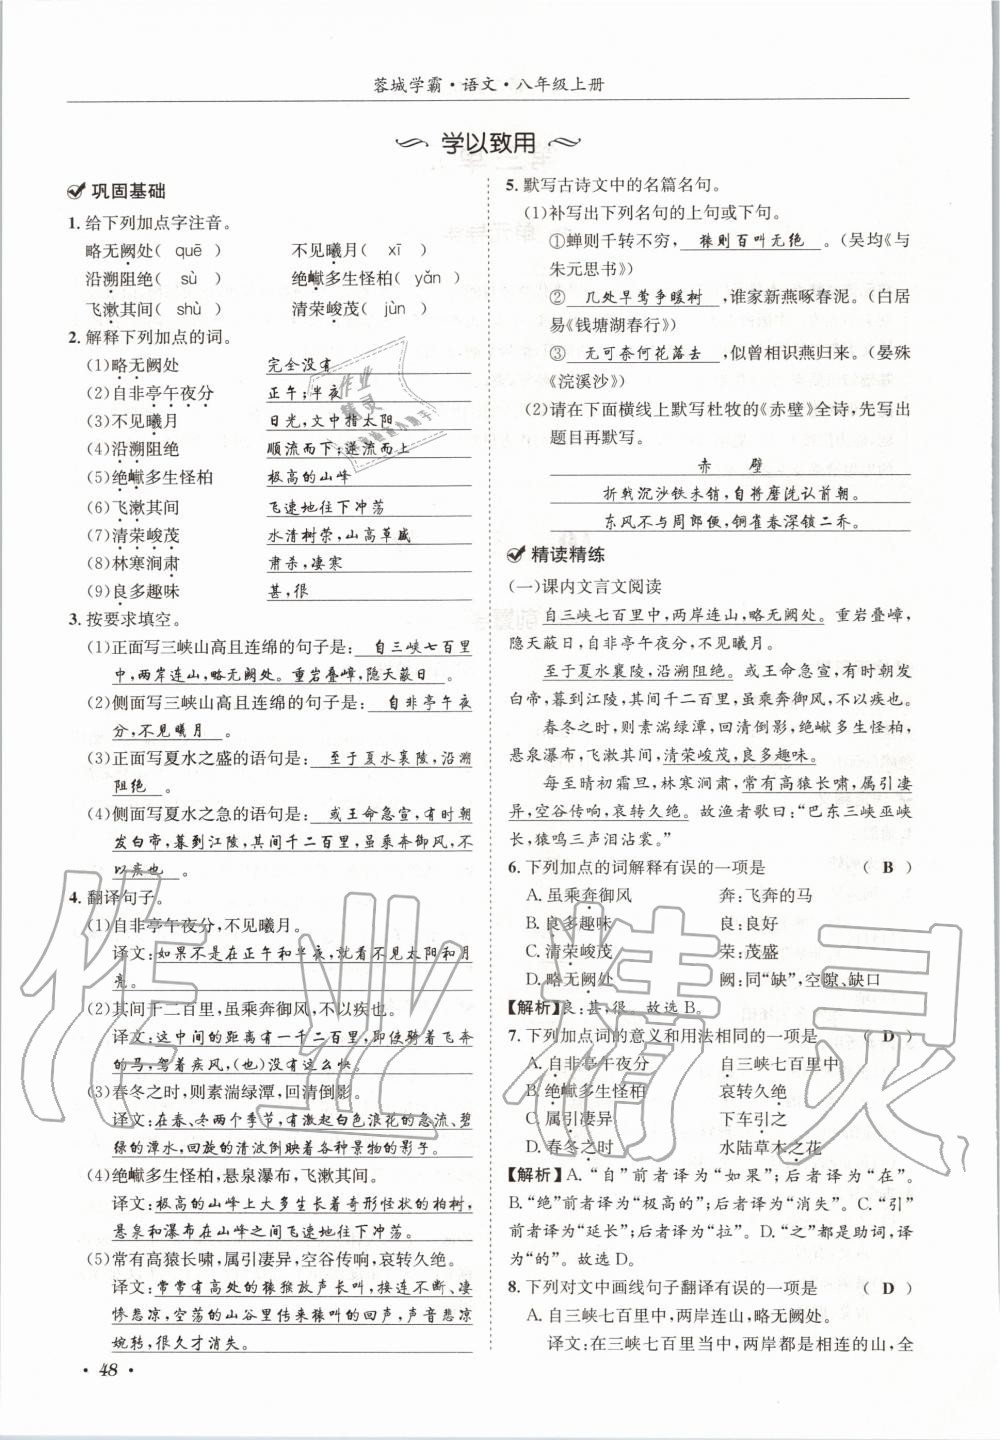 蓉城学霸·语文·八年级上册
学以致用
巩固基础
1. 给下列加点字注音。
略无阙处( quē ) 不见曦月( xī )
沿溯阻绝( sù ) 绝巘多生怪柏( yǎn )
飞漱其间( shù ) 清荣峻茂( jùn )
2. 解释下列加点的词。
(1)略无阙处 完全没有
(2)自非亭午夜分 正午;半夜
(3)不见曦月 日光,文中指太阳
(4)沿溯阻绝 顺流而下;逆流而上
(5)绝巘多生怪柏 极高的山峰
(6)飞漱其间 飞速地往下冲荡
(7)清荣峻茂 水清树荣,山高草盛
(8)林寒涧肃 肃杀,凄寒
(9)良多趣味 甚,很
3. 按要求填空。
(1)正面写三峡山高且连绵的句子是: 自三峡七百里
中,两岸连山,略无阙处。重岩叠嶂,隐天蔽日 。
(2)侧面写三峡山高且连绵的句子是: 自非亭午夜
分,不见曦月 。
(3)正面写夏水之盛的语句是: 至于夏水襄陵,沿溯
阻绝 。
(4)侧面写夏水之急的语句是: 或王命急宣,有时朝
发白帝,暮到江陵,其间千二百里,虽乘奔御风,不
以疾也 。
4. 翻译句子。
(1)自非亭午夜分,不见曦月。
译文:如果不是在正午和半夜,就看不见太阳和月
亮。
(2)其间千二百里,虽乘奔御风,不以疾也。
译文:这中间的距离有一千二百里,即使骑着飞奔
的马,驾着疾风,(也)没有这么快。
(3)春冬之时,则素湍绿潭,回清倒影。
译文:在春、冬两个季节,有激起白色浪花的急流、碧
绿的潭水,回旋的清波倒映着各种景物的影子。
(4)绝巘多生怪柏,悬泉瀑布,飞漱其间。
译文:极高的山峰上大多生长着奇形怪状的柏树,
悬泉和瀑布在山峰之间飞速地往下冲荡。
(5)常有高猿长啸,属引凄异,空谷传响,哀转久绝。
译文:常常有高处的猿猴放声长叫,接连不断、凄
惨悲凉,空荡的山谷里传来猿叫的回声,声音悲凉
婉转,很久才消失。
· 48 ·
5. 默写古诗文中的名篇名句。
(1)补写出下列名句的上句或下句。
①蝉则千转不穷, 猿则百叫无绝 。(吴均《与
朱元思书》)
② 几处早莺争暖树 ,谁家新燕啄春泥。(白居
易《钱塘湖春行》)
③ 无可奈何花落去 ,似曾相识燕归来。(晏殊
《浣溪沙》)
(2)请在下面横线上默写杜牧的《赤壁》全诗,先写出
题目再默写。
赤 壁
折戟沉沙铁未销,自将磨洗认前朝。
东风不与周郎便,铜雀春深锁二乔。
精读精练
(一)课内文言文阅读
自三峡七百里中,两岸连山,略无阙处。重岩叠嶂,
隐天蔽日,自非亭午夜分,不见曦月。
至于夏水襄陵,沿溯阻绝。或王命急宣,有时朝发
白帝,暮到江陵,其间千二百里,虽乘奔御风,不以疾也。
春冬之时,则素湍绿潭,回清倒影,绝巘多生怪柏,
悬泉瀑布,飞漱其间,清荣峻茂,良多趣味。
每至晴初霜旦,林寒涧肃,常有高猿长啸,属引凄
异,空谷传响,哀转久绝。故渔者歌曰:“巴东三峡巫峡
长,猿鸣三声泪沾裳。”
6. 下列加点的词解释有误的一项是 ( B )
A. 虽乘奔御风 奔:飞奔的马
B. 良多趣味 良:良好
C. 清荣峻茂 荣:茂盛
D. 略无阙处 阙:同“缺”,空隙、缺口
【解析】良:甚,很。故选 B。
7. 下列加点词的意义和用法相同的一项是 ( D )
A. 自非亭午夜分 自三峡七百里中
B. 绝巘多生怪柏 哀转久绝
C. 属引凄异 下车引之
D. 春冬之时 水陆草木之花
【解析】A. “自”前者译为“如果”;后者译为“在”。
B. “绝”前者译为“极高的”;后者译为“消失”。C. “引”
前者译为“延长”;后者译为“拉”。D. “之”都是助词,译
为“的”。故选 D。
8. 下列对文中画线句子翻译有误的一项是 ( D )
A. 自三峡七百里中,两岸连山,略无阙处。
译文:在三峡七百里当中,两岸都是相连的山,全